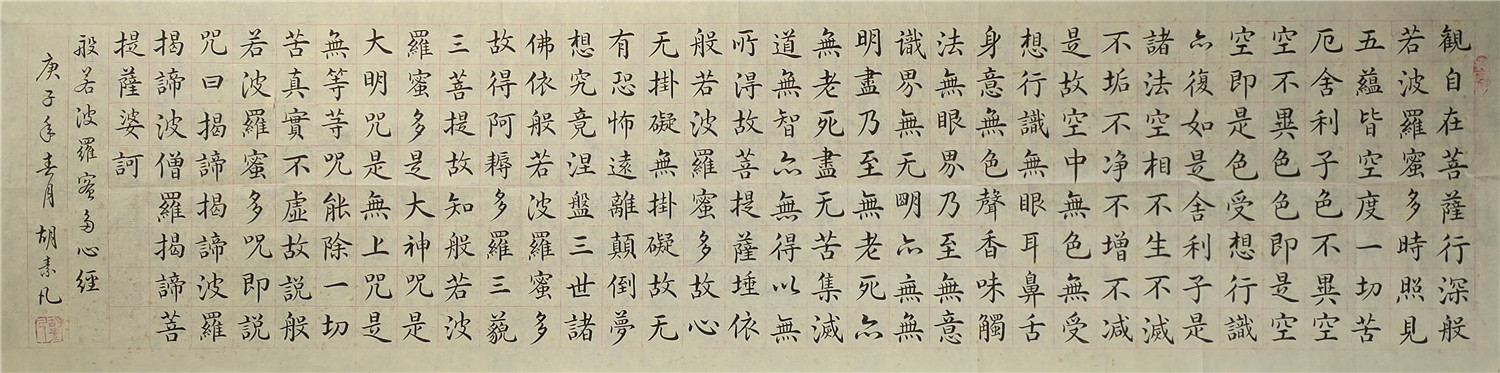 観自在菩薩行深般
若波羅蜜多時照見
五蘊皆空度一切苦
厄舍利子色不異空
空不異色色即是空
空即是色受想行識
亦復如是舍利子是
諸法空相不生不滅
不垢不净不增不减
是故空中無色無受
想行識無眼耳鼻舌
身意無色聲香味觸
法無眼界乃至無意
識界無无明亦無無
明盡乃至無老死亦
無老死盡无苦集滅
道無智亦無得以無
所得故菩提薩埵依
般若波羅蜜多故心
无掛礙無掛礙故无
有恐怖遠離顛倒夢
想究竟涅盤三世諸
佛依般若波羅蜜多
故得阿耨多羅三藐
三菩提故知般若波
羅蜜多是大神咒是
大明咒是無上咒是
無等等咒能除一切
苦真實不虛故説般
若波羅蜜多咒即説
咒曰揭諦揭諦波羅
揭諦波僧羅揭諦菩
提薩婆訶
般若波羅蜜多心經
庚子年春月胡素凡